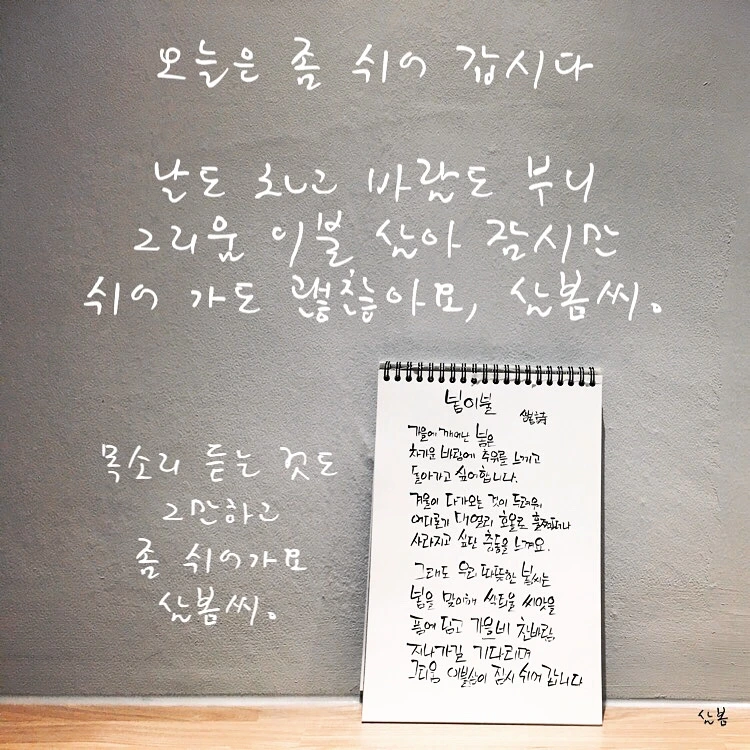 오늘은 좀 쉬어 갑시다
날도 차고 바람도 부니
그리움 이불 삼아 잠시만
쉬어 가도 괜찮아요,
목소리 듣는 것도
그만하고
좀 쉬어가요
봄이불
가을에 깨어난 봄은
차가운 바람에 추위를 느끼고
돌아가고 싶어합니다.
겨울이 다가오는 것이 두려워,
어디론가 머얼리 훌쩍떠나
사라지고 싶단 충동을 느껴요.
그래도 우리 따뜻한 봄씨는
봄을 맞이해 싹틔울 씨앗을
품에 담고 가을비 찬바람,
지나가길 기다리며
그리움 이불삼아 잠시 쉬어 갑니다